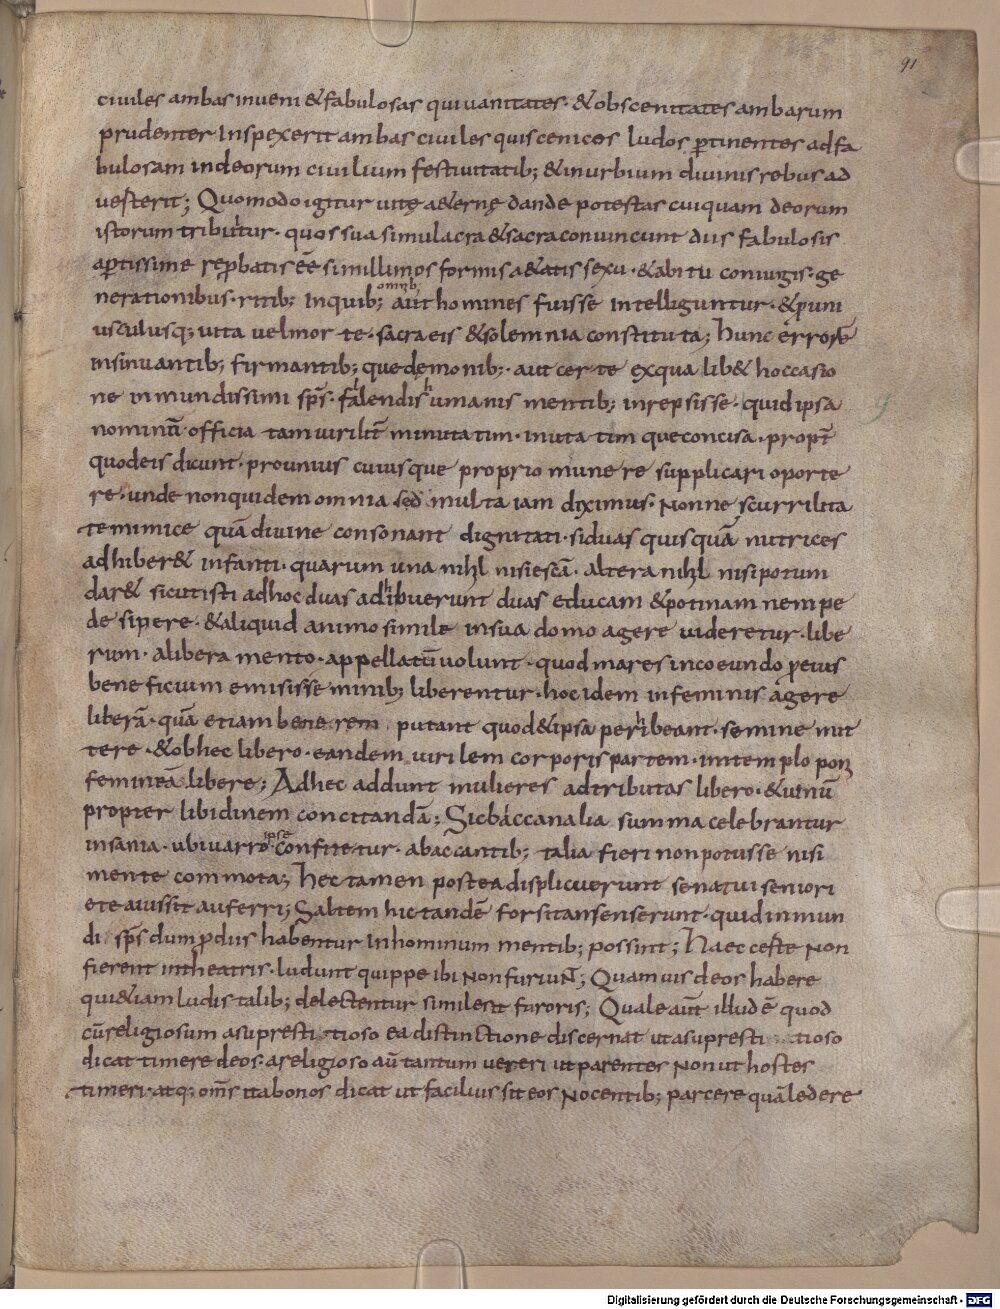 91
ciuiles ambas inueni & fabulosas qui uanitates · & obscenitates ambarum
prudenter Inspexerit ambas ciuiles qui scenicos ludos ꝑtinentes ad fa
bulosam in deorum ciuilium festiuitatib; & in urbium diuinis rebus ad
uesterit; Quomodo igitur uitę a&ernę dande potestas cuiquam deorum
istorum tribuitur · quos sua simulacra & sacra conuincunt diis fabulosis
aꝑtissime reꝓbatis eē simillimos formis a&atis sexu · & abitu coniugis · ge
nerationibus · ritib; In quib; omnib; aut homines fuisse intelliguntur · & pro uni
uscuiusq; uita uel mor te · sacra eis & solemnia constituta; hunc errorē
insinuantib; firmantib; que demonib; · aut cer te ex qua lib& hoccasio
ne inmundissimi sp̄s · fallendis humanis mentib; inrepsisse · quid ipsa
nominū officia tam uilit̄ minutatim · inuta tim que concisa · propt̄
quod eis dicunt · pro unius cuiusque proprio mune re supplicari oporte
re · unde non quidem omnia sed multa iam diximus · Nonne scurrilita
te mimice quā diuine consonant dignitati · si duas quisquā nutrices
adhiber& infanti · quarum una nihl nisi escā · altera nihl nisi potum
dar& sicut isti ad hoc duas adhibuerunt duas educam & potinam nempe
de sipere · & aliquid animo simile in sua domo agere uideretur · libe
rum · a libera mento · appellatū uolunt · quod mares in coeundo p eius
bene ficium emisisse minib; liberentur · hoc idem in feminis agere
liberā · quā etiam benerem putant quod & ipsa perhibeant · semine mit
tere · & ob hec libero · eandem uiri lem corporis partem · in templo poni
femineā libere; Ad hec addunt mulieres adtributas libero · & uinū
propter libidinem concitandā; Sic baccanalia summa celebrantur
insania · ubi uarro ipse confitetur · a baccantib; talia fieri non potuisse nisi
mente commota; hec tamen postea displicuerunt senatui seniori
et ea iussit auferri; Saltem hic tandē forsitan senserunt · quid inmun
di sp̄s dum ꝓ diis habentur In hominum mentib; possint; Haec certe Non
fierent in theatris · ludunt quippe ibi Non furiuNt; Quamuis deos habere
qui &iam ludis talib; delectentur simile sit furoris; Quale aūt illud ē quod
cū religiosum a supresti tioso ea distinctione discernat ut a supresti tioso
dicat timere deos · a religioso aū tantum uereri ut parentes Non ut hostes
timeri · atq; om̄s ita bonos dicat ut facilius sit eos Nocentib; parcere quā ledere
Digitalisierung gefördert durch die Deutsche Forschungsgemeinschaft - DFG